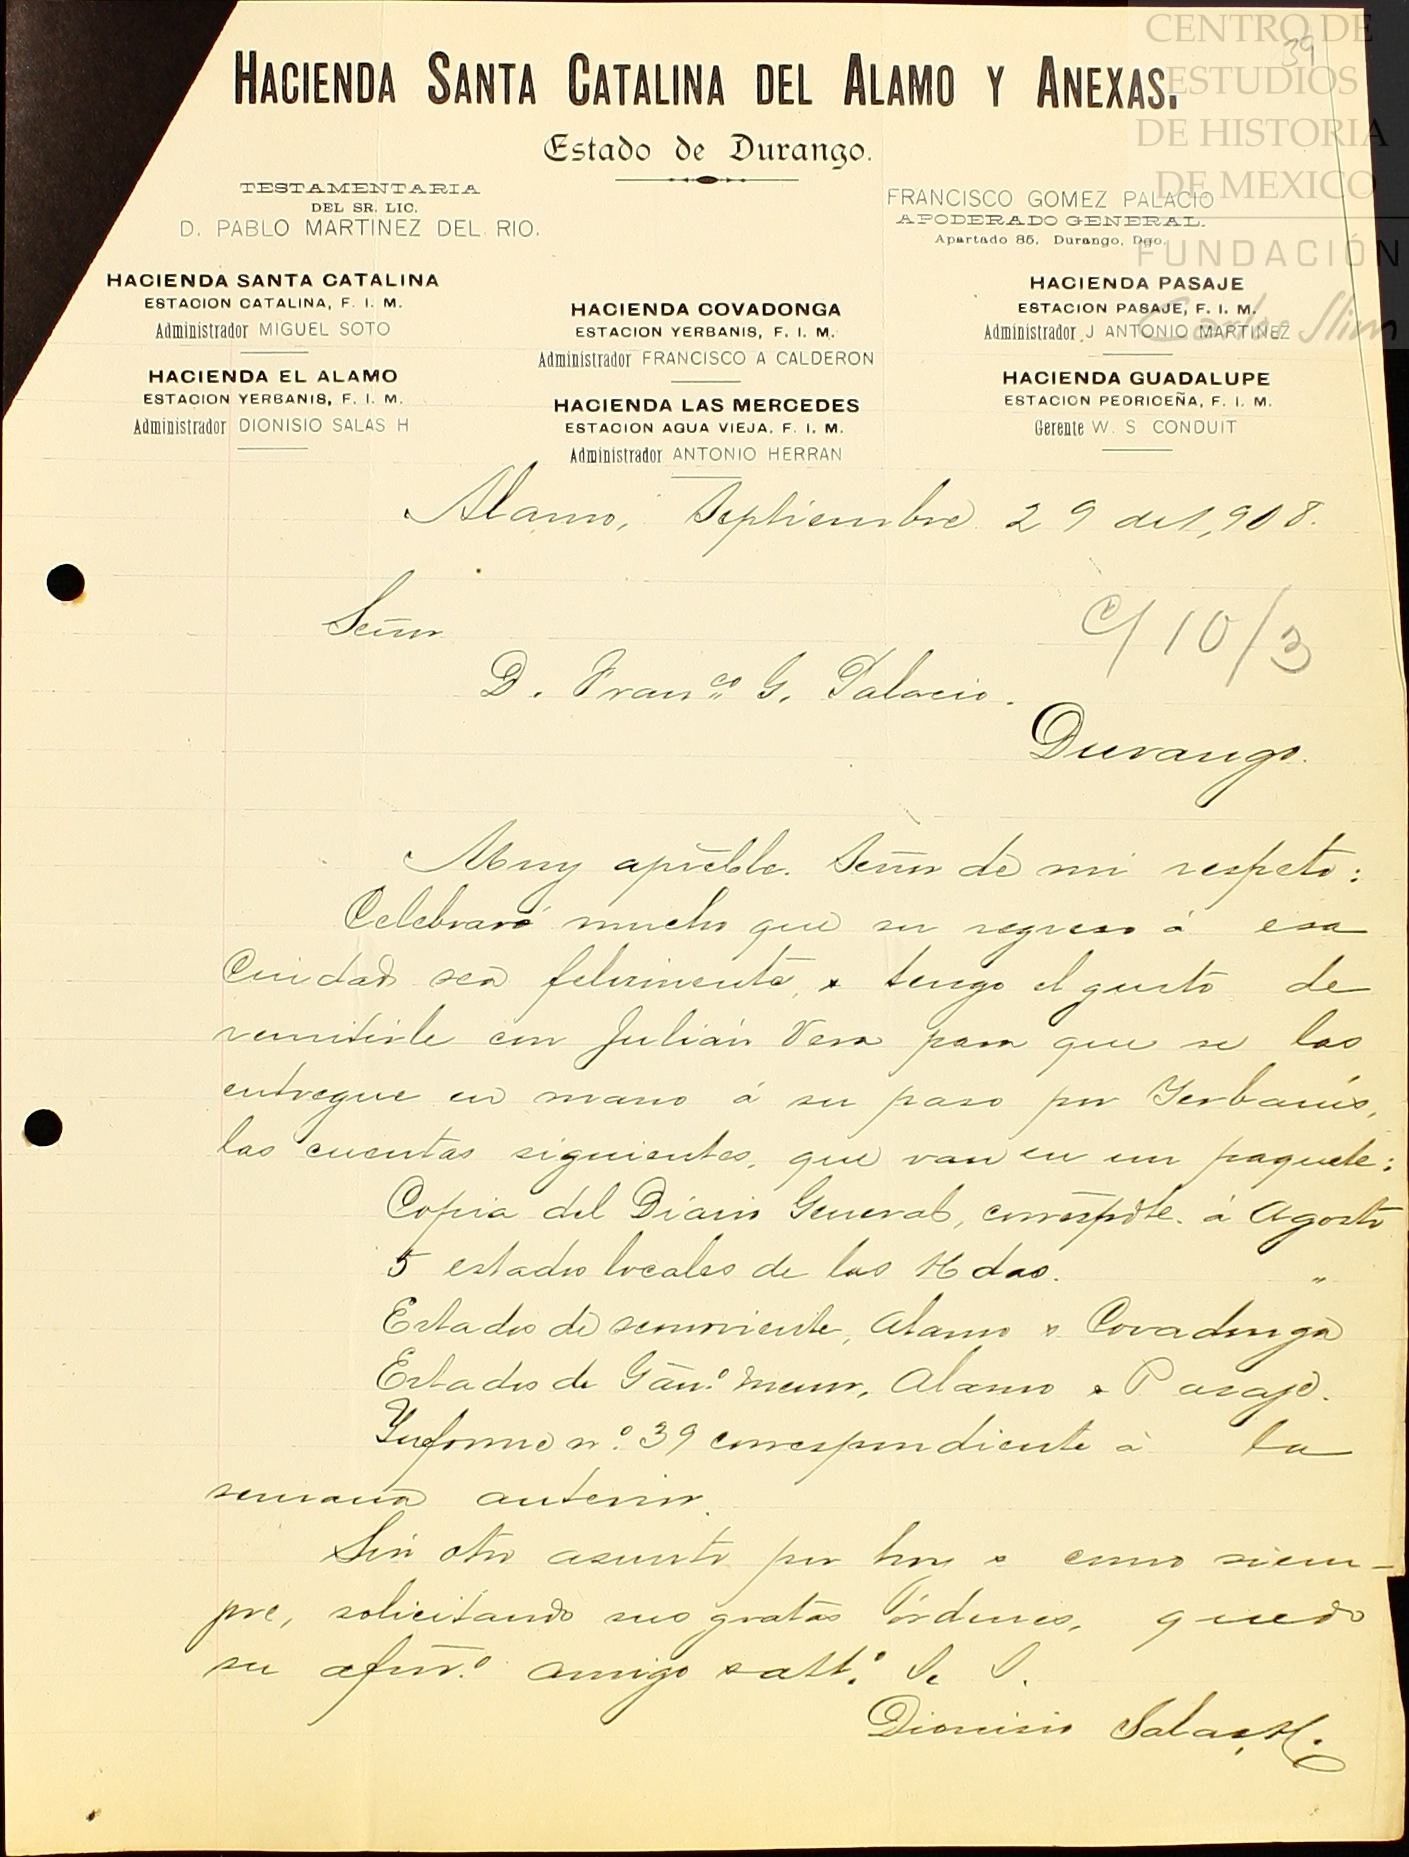 CENTRO DE
ESTUDIOS
DE HISTORIA
DE MEXICO
FUNDACIÓN
Carlos Slim
39
HACIENDA SANTA CATALINA DEL ALAMO Y ANEXAS.
Estado de Durango.
TESTAMENTARIA
DEL SR. LIC.
D. PABLO MARTINEZ DEL RIO.
FRANCISCO GOMEZ PALACIO
APODERADO GENERAL.
Apartado 85, Durango, Dgo.
HACIENDA SANTA CATALINA
ESTACION CATALINA, F. I. M.
Administrador MIGUEL SOTO
HACIENDA EL ALAMO
ESTACION YERBANIS, F. I. M.
Administrador DIONISIO SALAS H
HACIENDA COVADONGA
ESTACION YERBANIS, F. I. M.
Administrador FRANCISCO A CALDERON
HACIENDA LAS MERCEDES
ESTACION AGUA VIEJA, F. I. M.
Administrador ANTONIO HERRAN
HACIENDA PASAJE
ESTACION PASAJE, F. I. M.
Administrador J ANTONIO MARTINEZ
HACIENDA GUADALUPE
ESTACION PEDRICEÑA, F. I. M.
Gerente W. S CONDUIT
Alamo, Septiembre 29 de 1,908.
Señor
C/ 10/3
D. Franco G. Palacio.
Durango.
Muy apreble. Señor de mi respeto:
Celebraré mucho que su regreso á esa
Cuidad sea felizmente, y tengo el gusto de
remitirle con Julián Vera para que se las
entregue en mano á su paso por Yerbanís,
las cuentas siguientes, que van en un paquete:
Copia del Diario General, correspdte. á Agosto
5 estados locales de las Hdas. "
Estados de semoviente, Alamo y Covadonga
Estados de Gano. menor, Alamo y Pasaje.
Ynforme no. 39 correspondiente á la
semana anterior.
Sin otro asunto por hoy y como siem-
pre, solicitando sus gratas órdenes, quedo
su afmo. amigo y att.o S. S.
Dionisio Salas H.